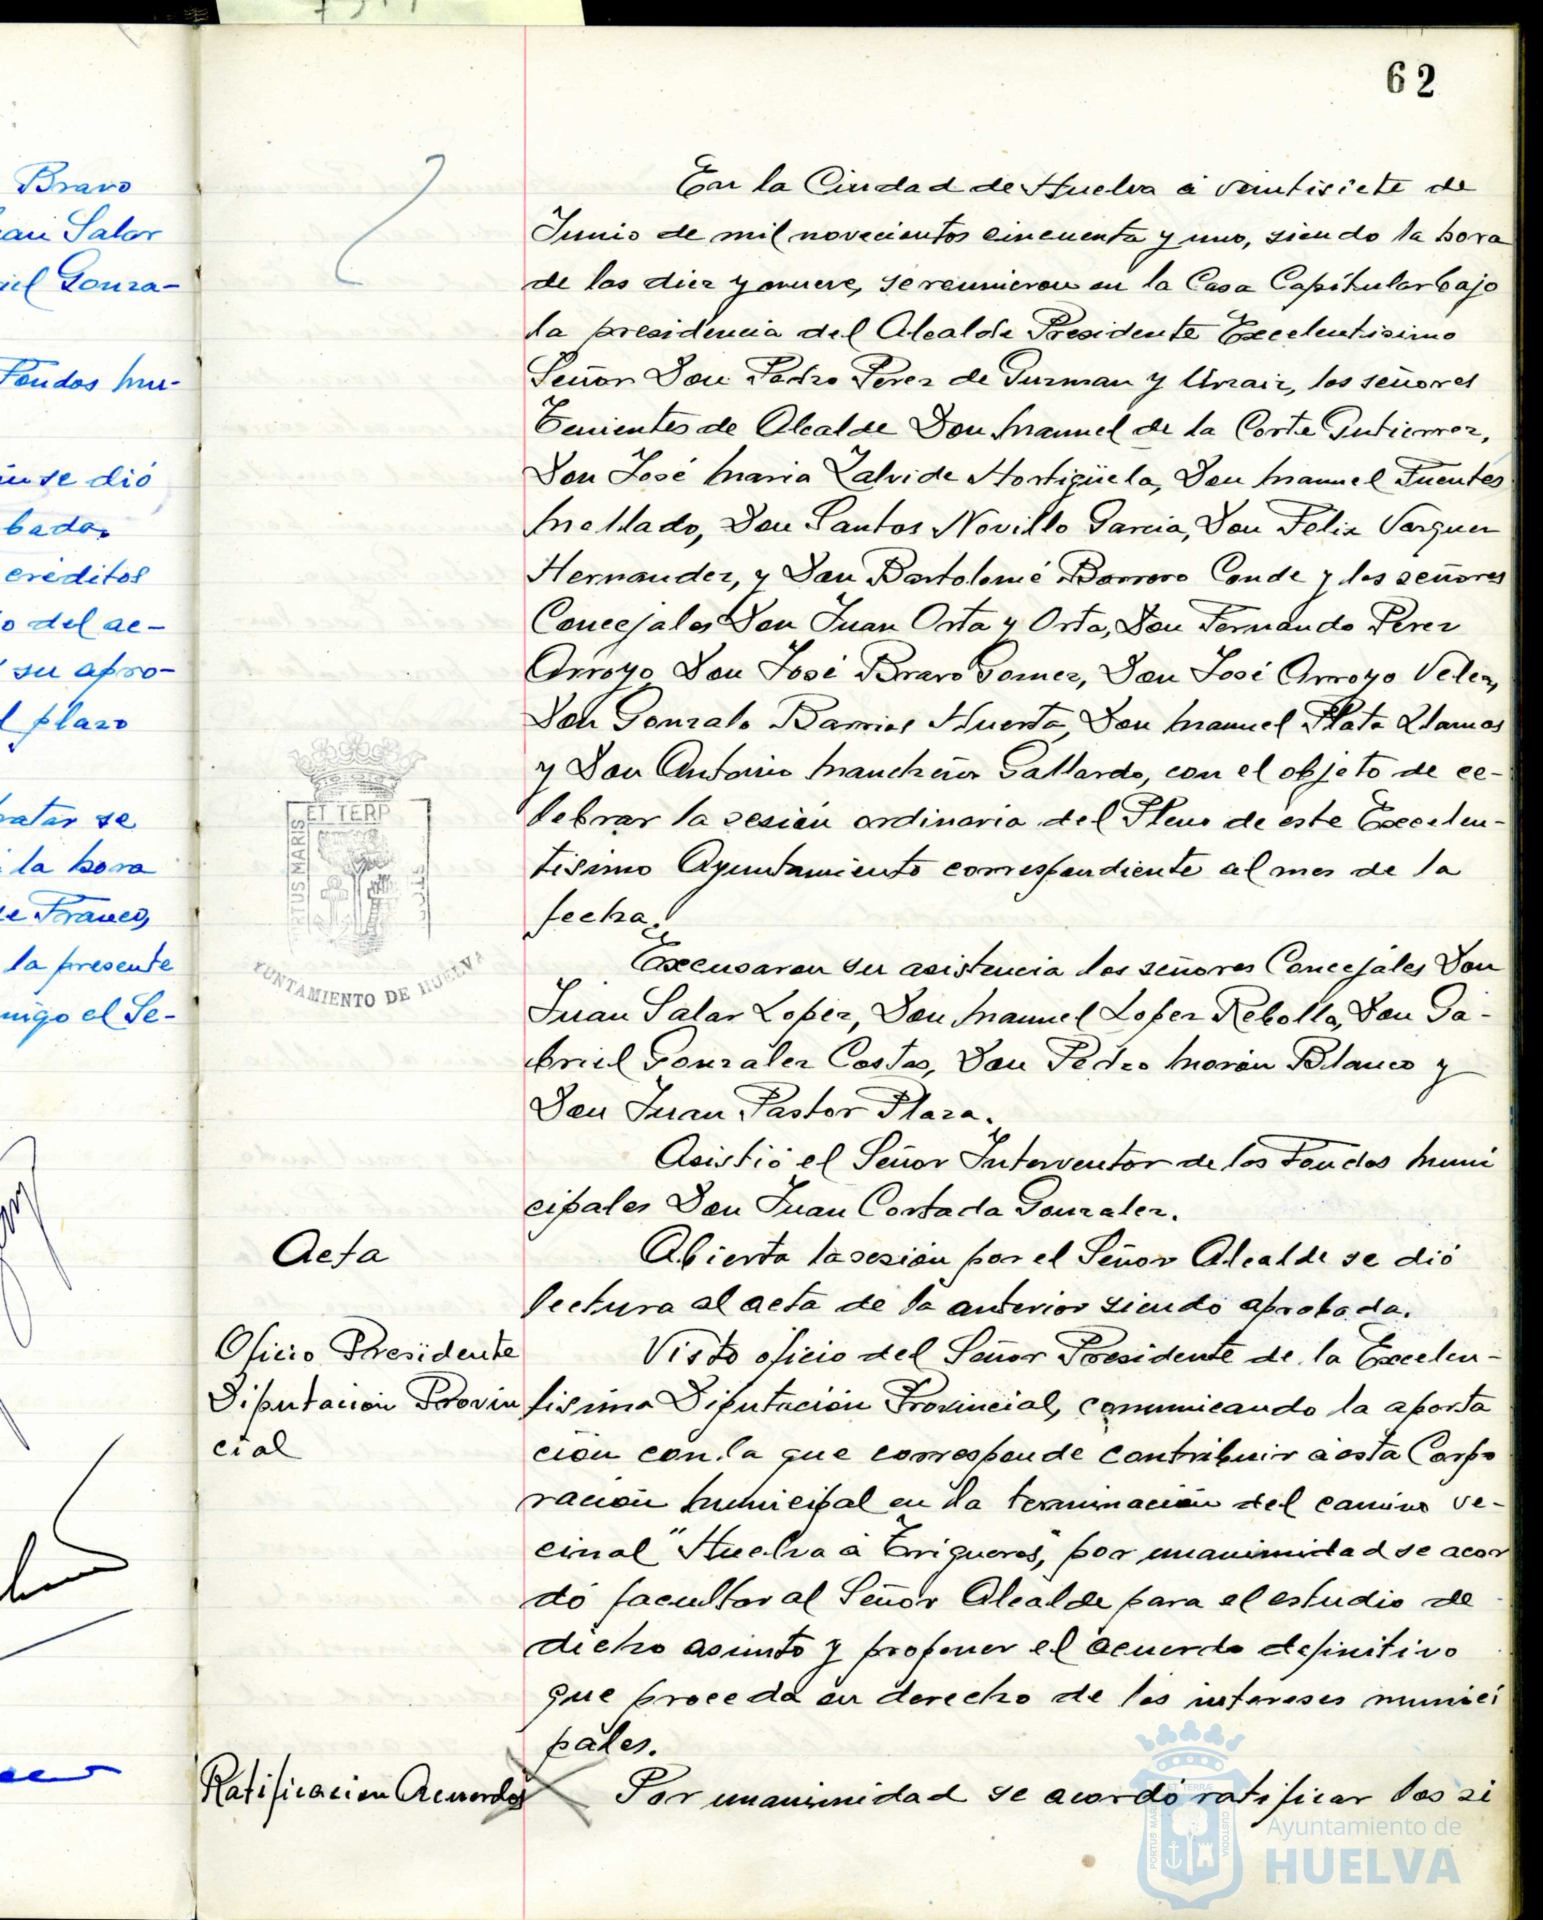 62
Bravo
Salar
Gonza-
Fondos mu-
se dió
bada.
créditos
o del ac-
su apro-
l plazo
ratar se
la hora
de Franco,
la presente
migo el Se-
En la Ciudad de Huelva á veintisiete de
Junio de mil novecientos cincuenta y uno, siendo la hora
de las diez y nueve, se reunieron en la Casa Capitular bajo
la presidencia del Alcalde Presidente Excelentisimo
Señor Don Pedro Perez de Guzman y Urzaiz, los señores
Tenientes de Alcalde Don Manuel de la Corte Gutierrez,
Don José Maria Zalvide Hortigüela, Don Manuel Fuentes
Mellado, Don Santos Novillo Garcia, Don Felix Vazquez
Hernandez, y Don Bartolomé Borrero Conde y los señores
Concejales Don Juan Orta y Orta, Don Fernando Perez
Arroyo, Don José Bravo Gomez, Don José Arroyo Velez,
Don Gonzalo Barrios Huerta, Don Manuel Plata Llamas
y Don Antonio Mancheño Gallardo, con el objeto de ce-
lebrar la sesión ordinaria del Pleno de este Excelen-
tisimo Ayuntamiento correspondiente al mes de la
fecha.
Excusaron su asistencia los señores Concejales Don
Juan Salar Lopez, Don Manuel Lopez Rebollo, Don Ga-
briel Gonzalez Costas, Don Pedro Morón Blanco y
Don Juan Pastor Plaza.
Asistió el Señor Interventor de los Fondos muni
cipales Don Juan Cortada Gonzalez.
Acta
Abierta la sesión por el Señor Alcalde se dió
lectura al acta de la anterior siendo aprobada.
Oficio Presidente
Diputación Provin
cial
Visto oficio del Señor Presidente de la Excelen-
tisima Diputación Provincial, comunicando la aporta
ción con la que corresponde contribuir á esta Corpo
ración Municipal en la terminación del camino ve-
cinal "Huelva á Trigueros", por unanimidad se acor
dó facultar al Señor Alcalde para el estudio de
dicho asunto y proponer el acuerdo definitivo
que proceda en derecho de los intereses munici
pales.
Ratificacion Acuerdos
Por unanimidad se acordó ratificar los si
ET TERR
PORTUS MARIS
YUNTAMIENTO DE HUELVA
ET TERRÆ
PORTUS MARIS
CUSTODIA
Ayuntamiento de
HUELVA